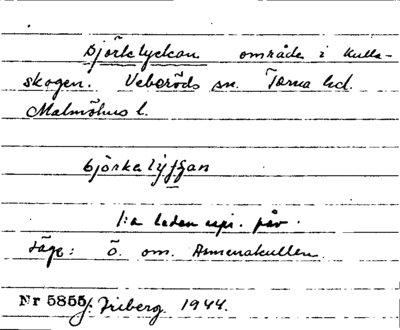 Björkelyckan område i Kulla-
skogen. Veberöds sn. Torna hd.
Malmöhus l.
björkalyʃʃan
1:a leden upr. påv.
Läge: Ö. om. Annerakullen.
Nr 5855. J. Friberg 1944.